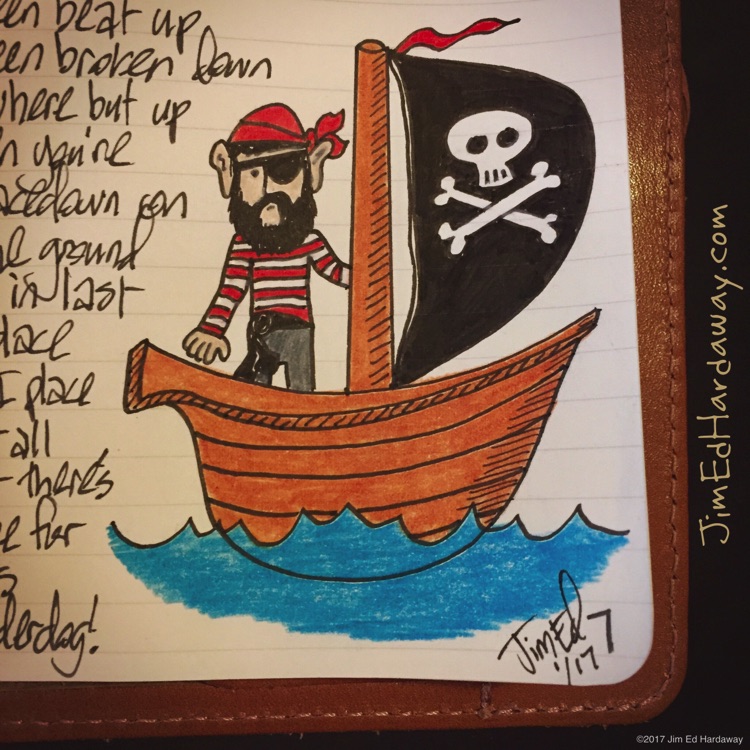 een beat up
een broken down
where but up
n you're
acedown on
he ground
in last
place
I place
all
- there's
e for
derdog!
JimEd 7
1/17
JimEdHardaway.com
©2017 Jim Ed Hardaway